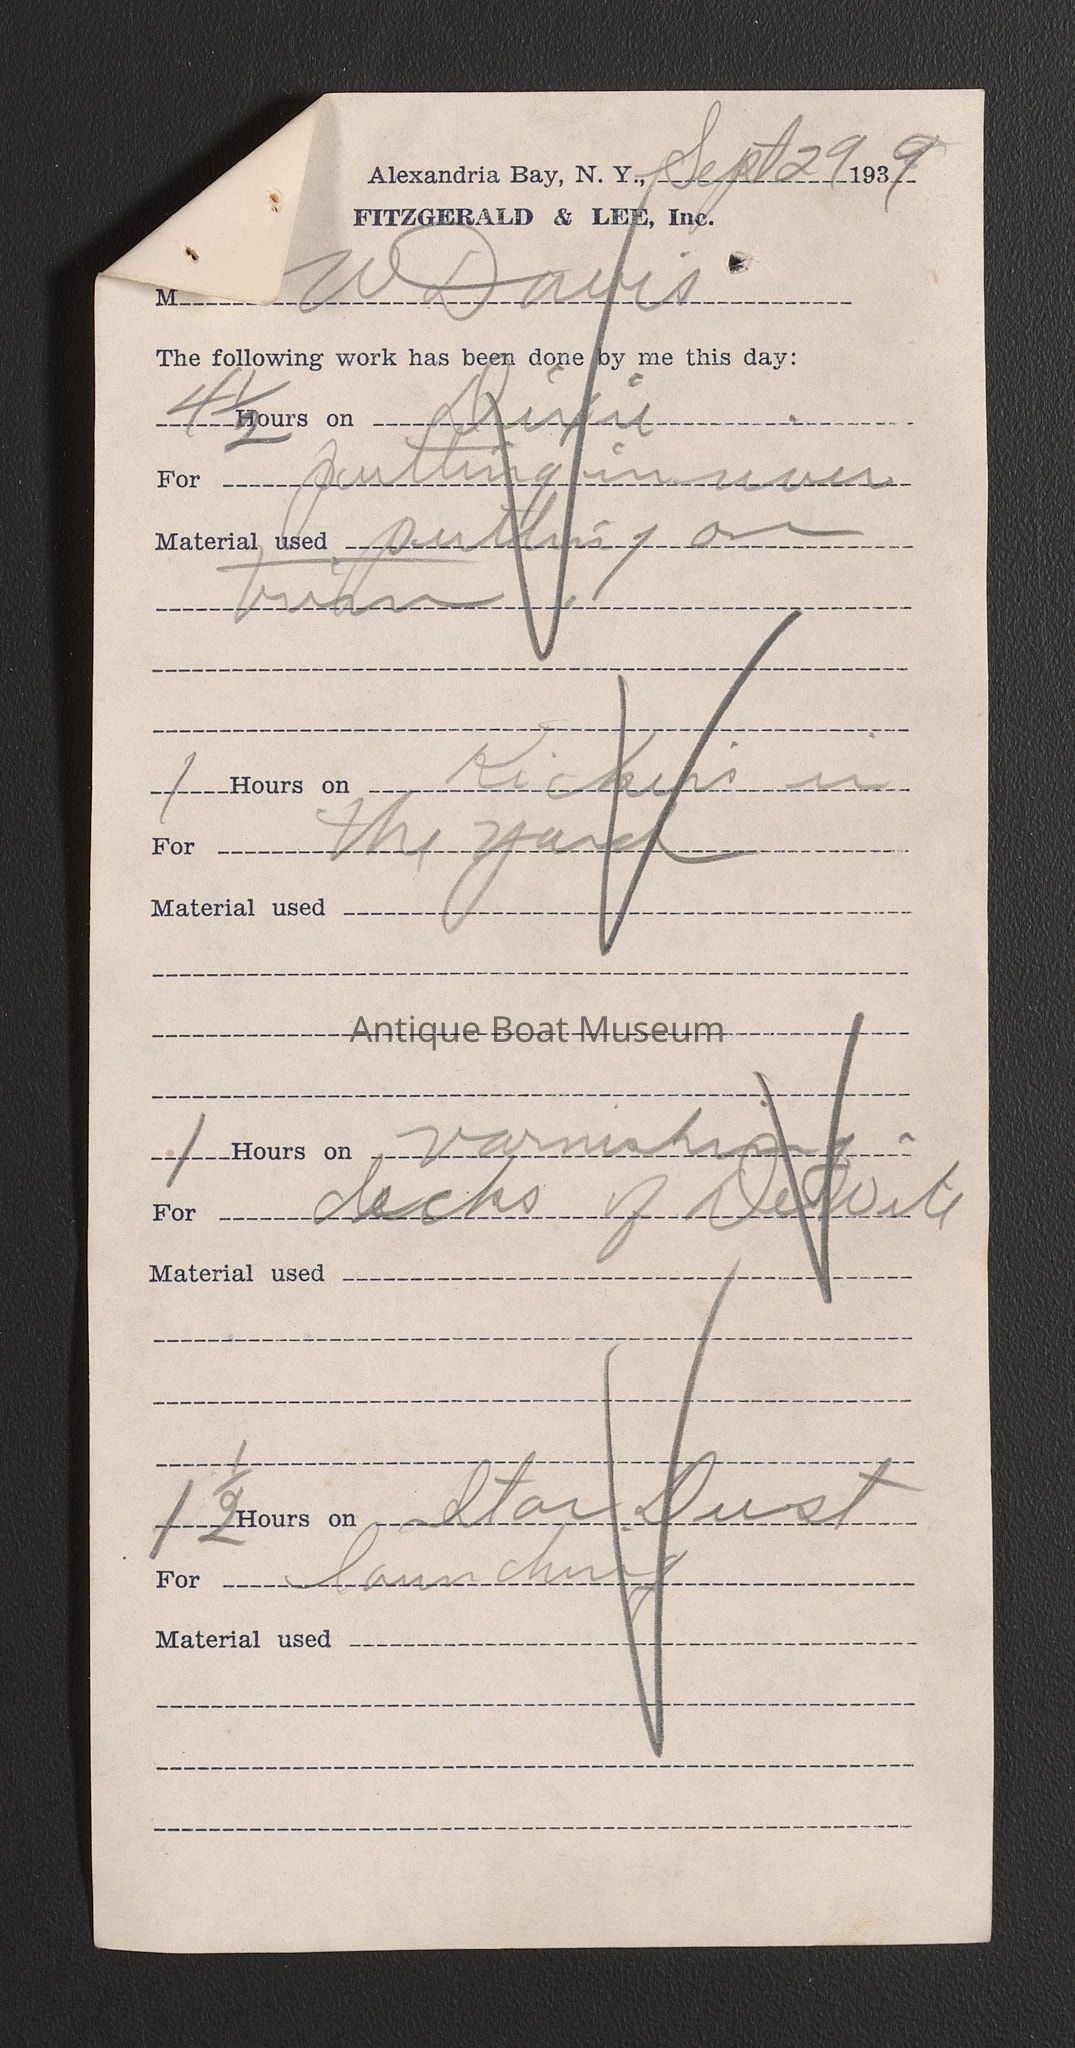 Alexandria Bay, N. Y., Sept 29 1939
FITZGERALD & LEE, Inc.
M W Davis
The following work has been done by me this day:
4 1/2 Hours on Dixie
For putting in river
Material used putting on
trim
1 Hours on Kickers in
For the yard
Material used
Antique Boat Museum
1 Hours on varnishing
For decks of DeWite
Material used
1 1/2 Hours on Star Dust
For launching
Material used